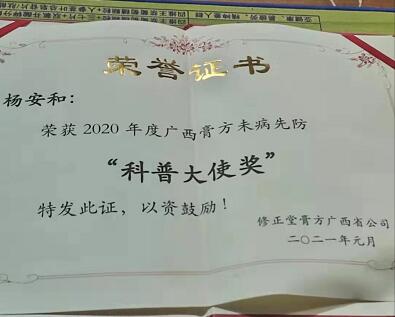 荣誉证书
杨安和:
荣获 2020 年度广西膏方未病先防
“科普大使奖”
特发此证,以资鼓励!
修正堂膏方广西省公司
二〇二一年元月